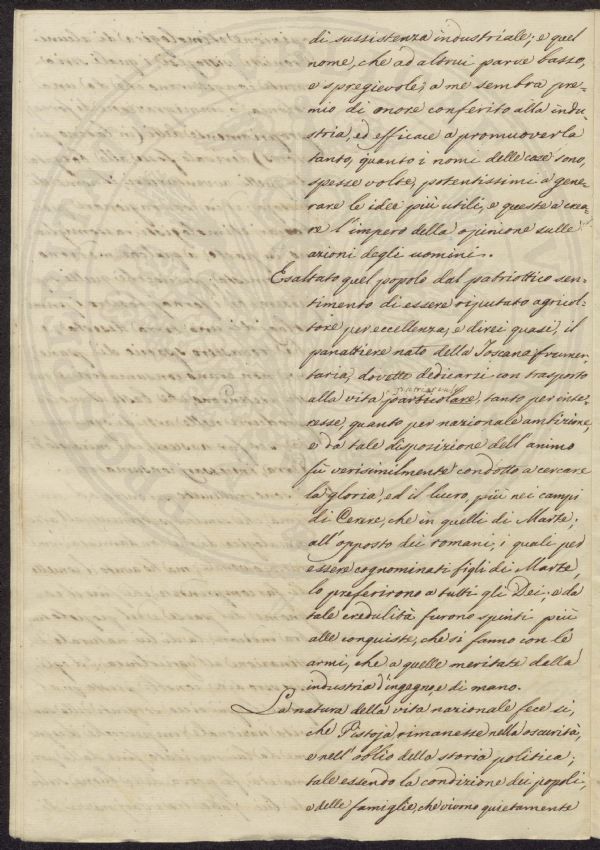 di sussistenza industriale; e quel
nome, che ad altrui parve basso,
e spregievole, a me sembra pre-
mio di onore conferito alla indu-
stria, ed efficace a promuoverla
tanto, quanto i nomi delle cose sono,
spesse volte, potentissimi a gene-
rare le idee più utili, e queste a crea-
re l'impero della opinione sulle
azioni degli uomini.
Esaltato quel popolo dal patriottico sen-
timento di essere riputato agricol-
tore per eccellenza, e direi quasi, il
panattiere nato della Toscana frumen-
taria, dovette dedicarsi con trasporto
alla vita particolare, tanto per inte-
resse, quanto per nazionale ambizione,
e da tale disposizione dell'animo
fù verisimilmente condotto a cercare
la gloria, ed il lucro, più nei campi
di Cerere, che in quelli di Marte;
all'opposto dei romani, i quali per
essere cognominati figli di Marte,
lo preferirono a tutti gli Dei; e da
tale credulità furono spinti più
alle conquiste, che si fanno con le
armi, che a quelle meritate della
industria d'ingegno, e di mano.
La natura della vita nazionale fece si,
che Pistoja rimanesse nella oscurità,
e nell'oblio della storia politica;
tale essendo la condizione dei popoli,
e delle famiglie, che vivono quietamente